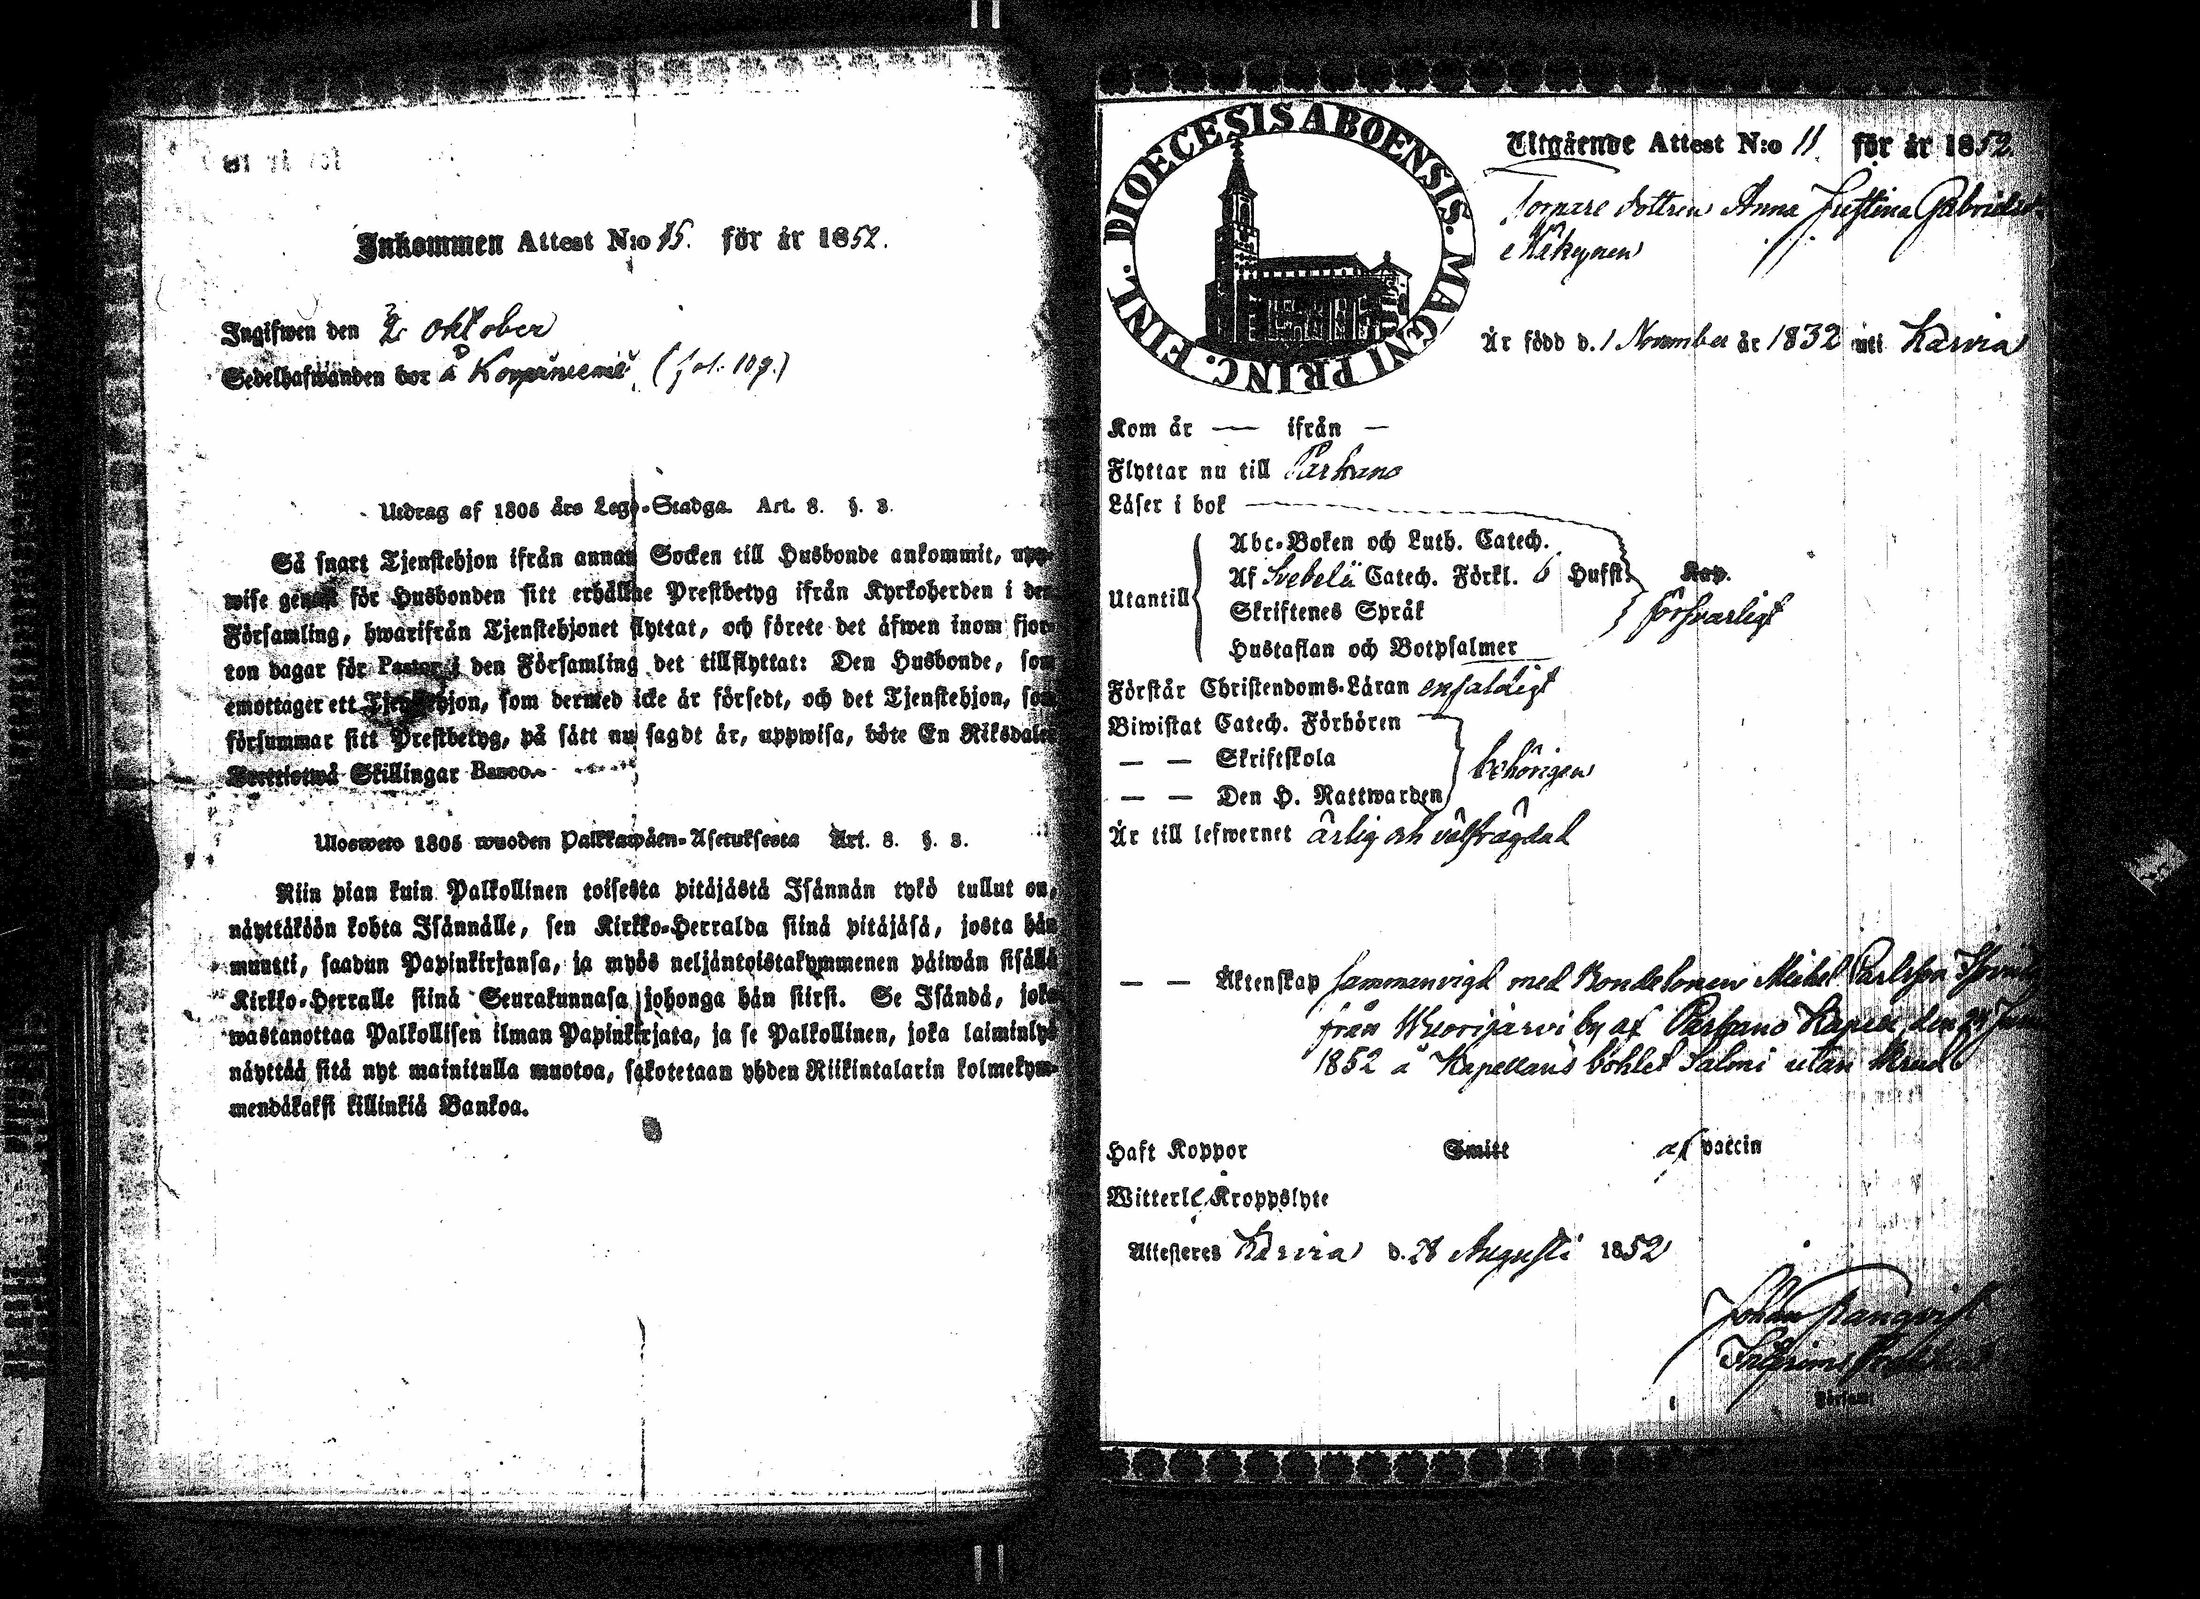 Inkommen Attest N:o 15. för år 1852.
Ingifwen den 2 oktober
Sedelhafwanden bor å (fol. 109.)
Utdrag af 1805 års Lego-Stadga. Art. 8. §. 3.
Så snart Tjenstehjon ifrån annan Socken till Husbonde ankommit, upp-
wise genast för Husbonden sitt erhållne Prestbetyg ifrån Kyrkoherden i den
Församling, hwarifrån Tjenstehjonet flyttat, och förete det äfwen inom fjor-
ton dagar för Pastor i den Församling det tillflyttat: Den Husbonde, som
emottager ett Tjenstehjon, som dermed icke är försedt, och det Tjenstehjon, som
försummar sitt Prestbetyg, på sätt nu sagdt är, uppwisa, böte En Riksdaler
Trettiotwå Skillingar Banco.
Ulosweto 1805 wuoden Palkkawäen-Asetuksesta Art. 8. §. 3.
Niin pian kuin Palkollinen toisesta pitäjästä Isännän tykö tullut on,
näyttäköön kohta Isännälle, sen Kirkko-Herralda siinä pitäjäsä, josta hän
muutti, saadun Papinkirjansa, ja myös neljäntoistakymmenen päiwän sisällä
Kirkko-Herralle siinä Seurakunnasa johonga hän siirsi. Se Isändä, joka
wastanottaa Palkollisen ilman Papinkirjata, ja se Palkollinen, joka laiminlyö
näyttää sitä nyt mainitulla muotoa, sakotetaan yhden Riikintalarin kolmekym-
mendäkaksi killinkiä Bankoa.
DIOECESIS ABOENSIS. MAGNI PRINC. FINL.
Utgående Attest N:o 11 för år 1852.
Torpare dottren Anna Justina Gabriels
Är född d. 1 November år 1832 uti Karvia
Kom år — ifrån —
Flyttar nu till Parkano
Läser i bok
Utantill
Abc-Boken och Luth. Catech.
Af Svebelii Catech. Förkl. 6 Hufst.
Kap.
Skriftenes Språk
försvarligt
Hustaflan och Botpsalmer
Förstår Christendoms-Läran enfaldigt
Biwistat Catech. Förhören
— — Skriftskola
behörigen
— — Den H. Nattwarden
Är till lefwernet ärlig och välfrägdad
— — Äktenskap sammanvigd med Bondesonen Mickel Carlsson
från Wuorijärvi by af Parkano Kapell, den 24
1852 å Kapellans bohlet Salmi utan Brud
Haft Koppor Smitt af vaccin
Witterl. Kroppslyte
Attesteres Karvia d. 28 Augusti 1852
Johan